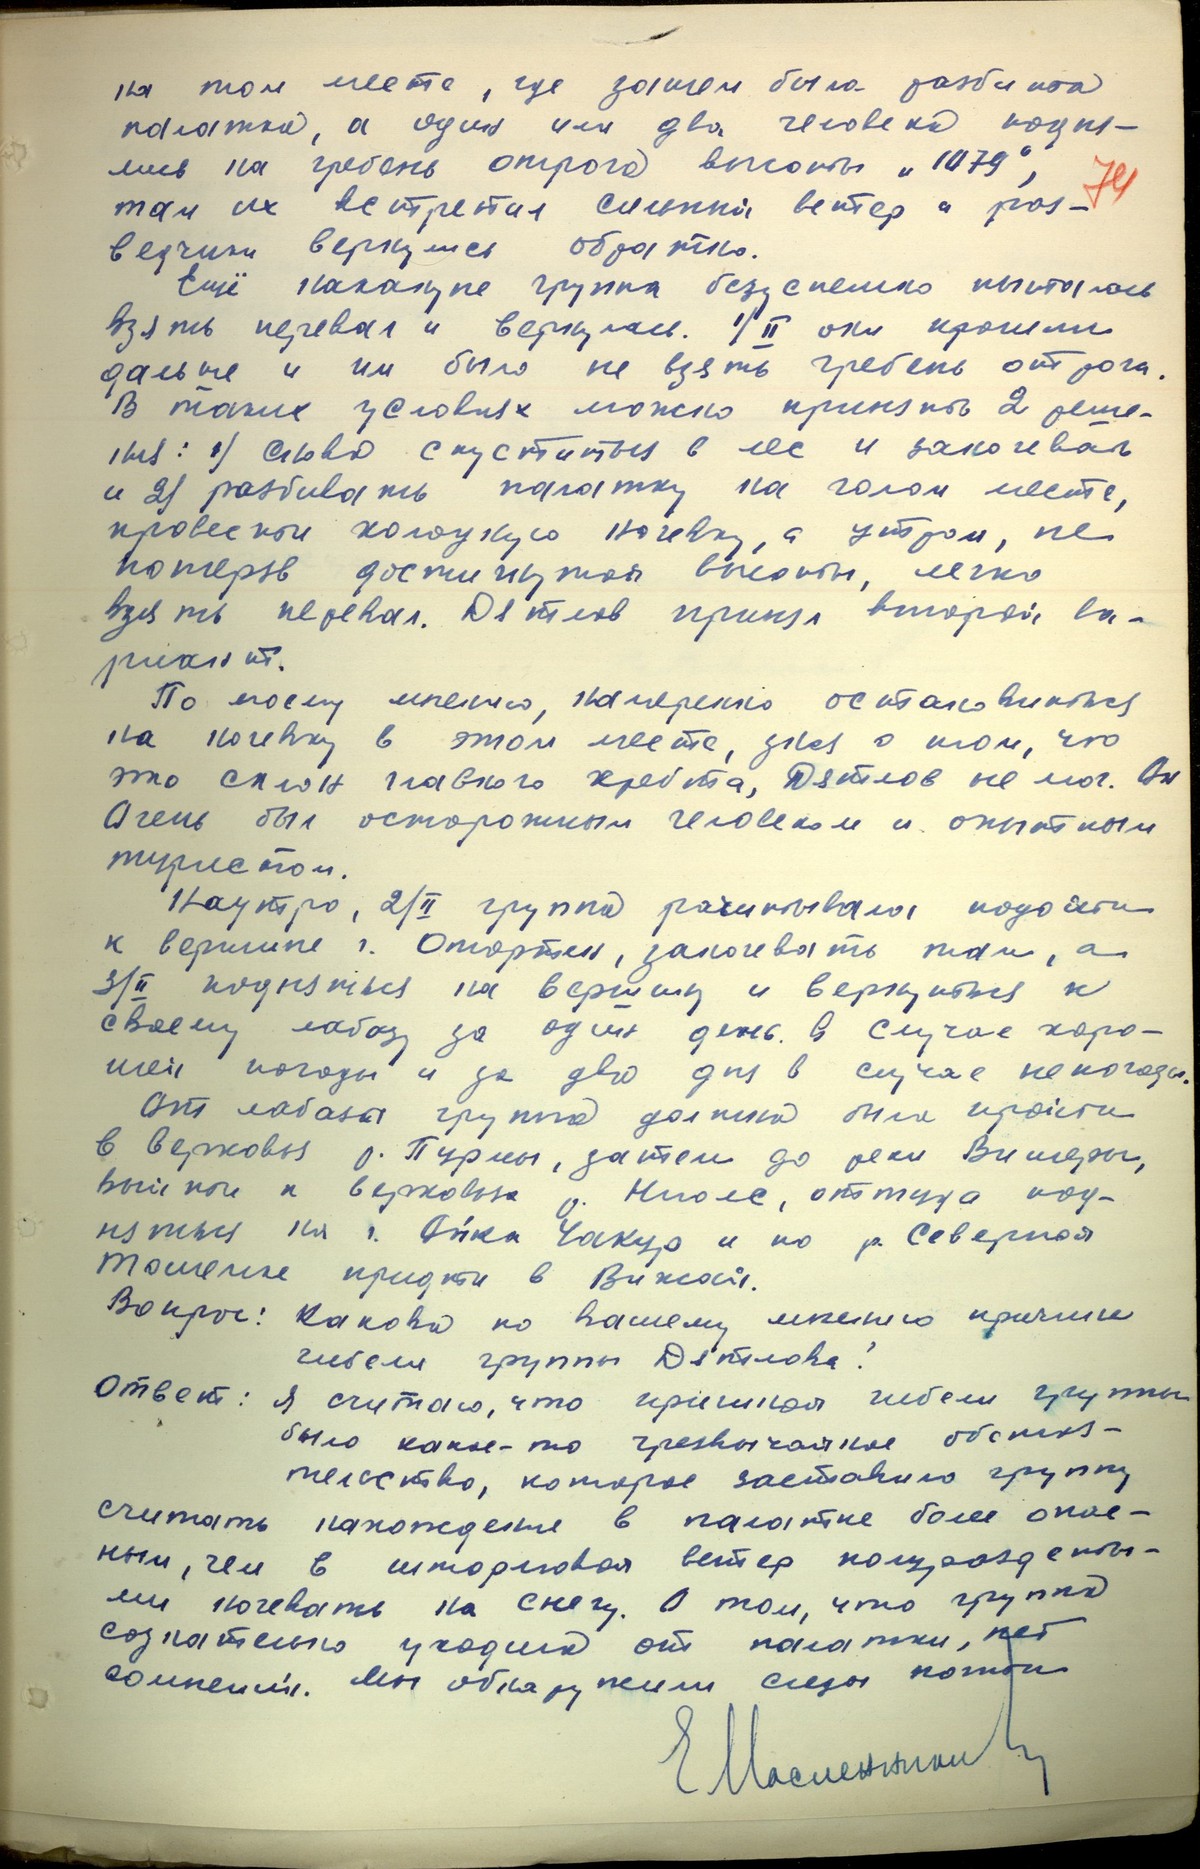 на том месте, где затем была разбита
палатка, а один или два человека подня-
лись на гребень отрога высоты „1079",
74
там их встретил сильный ветер и раз-
ведчики вернулись обратно.
Ещё накануне группа безуспешно пыталась
взять перевал и вернулась. 1/II они прошли
дальше и им было не взять гребень отрога.
В таких условиях можно принять 2 реше-
ния: 1/ снова спуститься в лес и заночевать
и 2/ разбивать палатку на голом месте,
провести холодную ночевку, а утром, не
потеряв достигнутой высоты, легко
взять перевал. Дятлов принял второй ва-
риант.
По моему мнению, намеренно остановиться
на ночевку в этом месте, зная о том, что
это склон главного хребта, Дятлов не мог. Он
очень был осторожным человеком и опытным
туристом.
Наутро, 2/II группа расчитывала подойти
к вершине г. Отортен, заночевать там, а
3/II подняться на вершину и вернуться к
своему лабазу за один день в случае хоро-
шей погоды и за два дня в случае непогоды.
От лабаза группа должна была пройти
в верховья р. Пурмы, затем до реки Вишеры,
выйти к верховьям р. Ниолс, оттуда под-
няться на г. Ойка Чакур и по р. Северной
Тошемке придти в Вижай.
Вопрос: Какова по вашему мнению причина
гибели группы Дятлова?
Ответ: Я считаю, что причиной гибели группы
было какое-то чрезвычайное обстоя-
тельство, которое заставило группу
считать нахождение в палатке более опас-
ным, чем в штормовой ветер полураздеты-
ми ночевать на снегу. О том, что группа
сознательно уходила от палатки, нет
сомнений. Мы обнаружили следы почти
Е Масленников